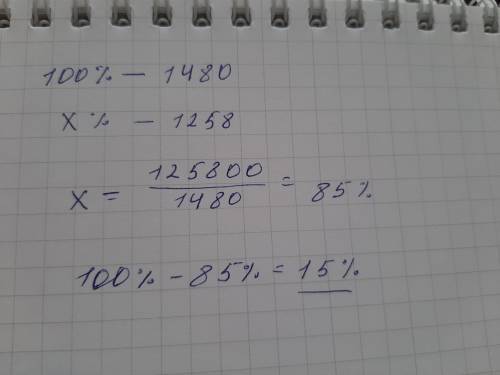 100% — 1480
x% — 1258
x = 125800/1480 = 85%
100% - 85% = 15%